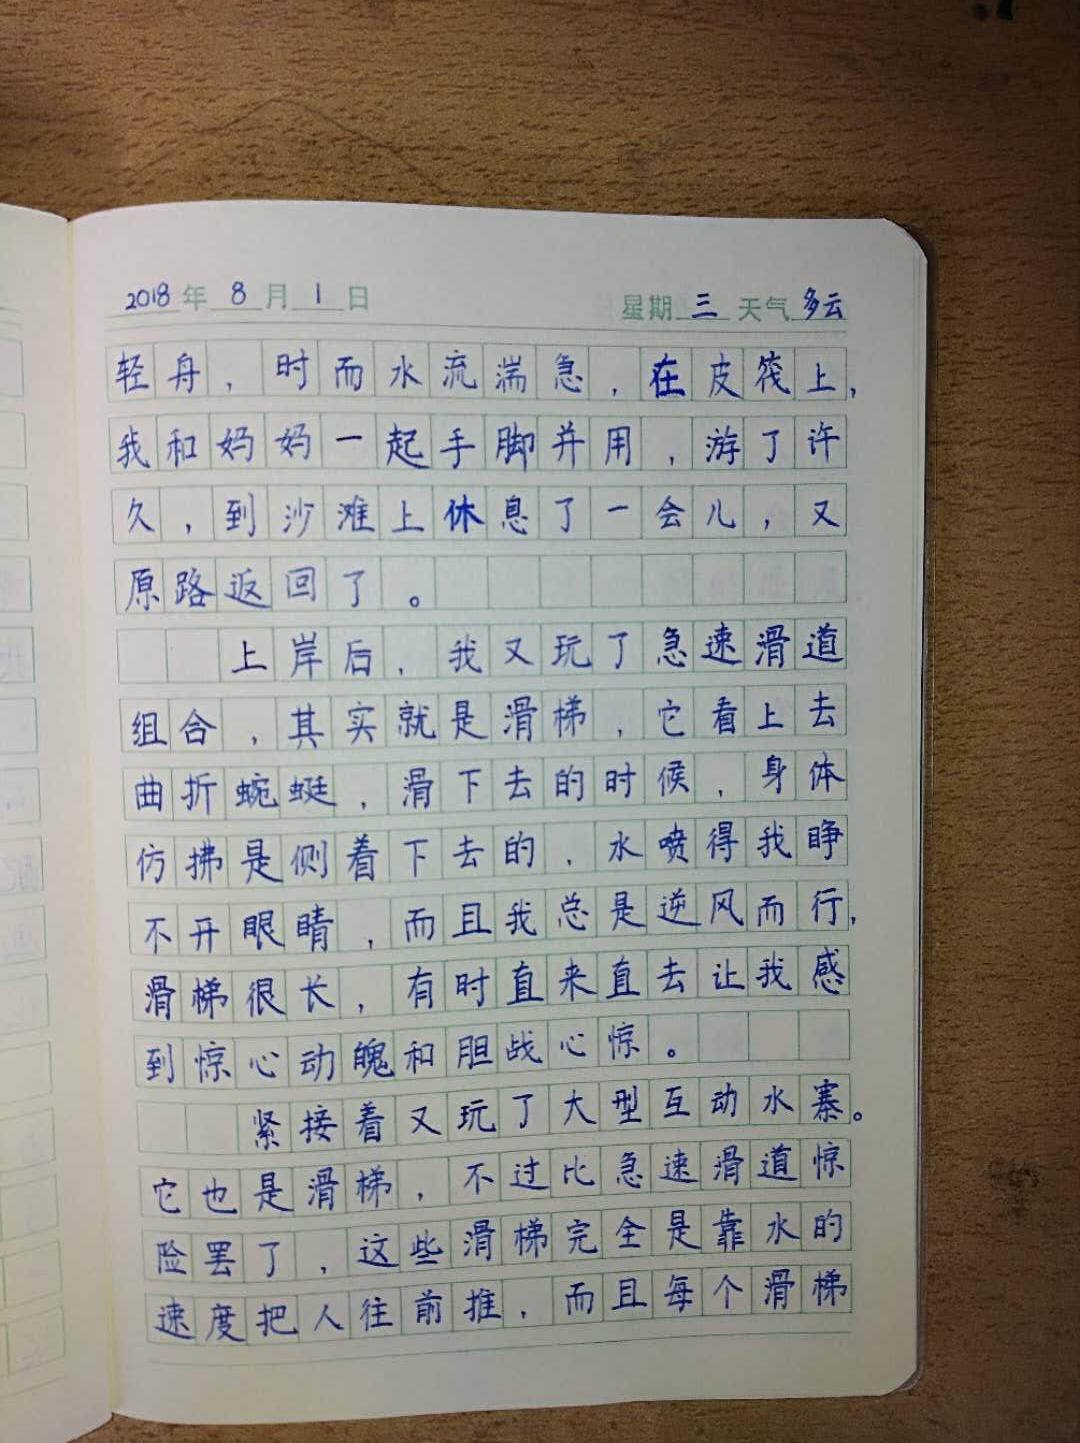 2018年8月1日 星期三 天气多云
轻舟，时而水流湍急，在皮筏上，
我和妈妈一起手脚并用，游了许
久，到沙滩上休息了一会儿，又
原路返回了。
上岸后，我又玩了急速滑道
组合，其实就是滑梯，它看上去
曲折蜿蜒，滑下去的时候，身体
仿拂是侧着下去的，水喷得我睁
不开眼睛，而且我总是逆风而行，
滑梯很长，有时直来直去让我感
到惊心动魄和胆战心惊。
紧接着又玩了大型互动水寨。
它也是滑梯，不过比急速滑道惊
险罢了，这些滑梯完全是靠水的
速度把人往前推，而且每个滑梯